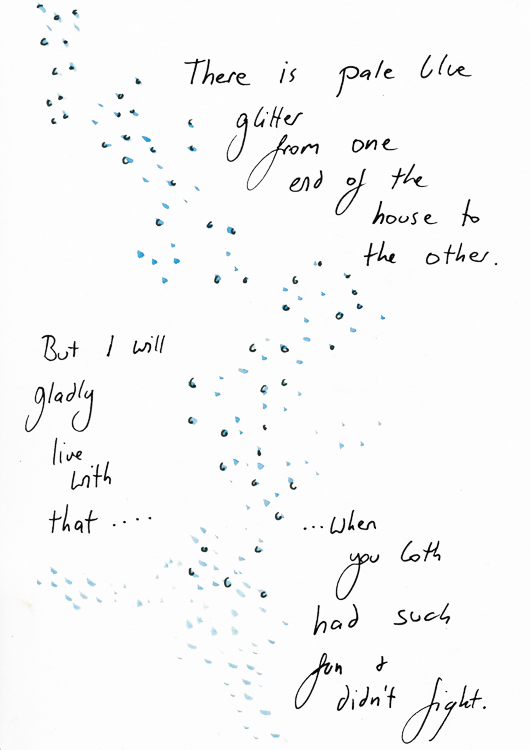 There is pale blue
glitter
from one
end of the
house to
the other.
But I will
gladly
live
with
that ....
...when
you both
had such
fun &
didn't fight.